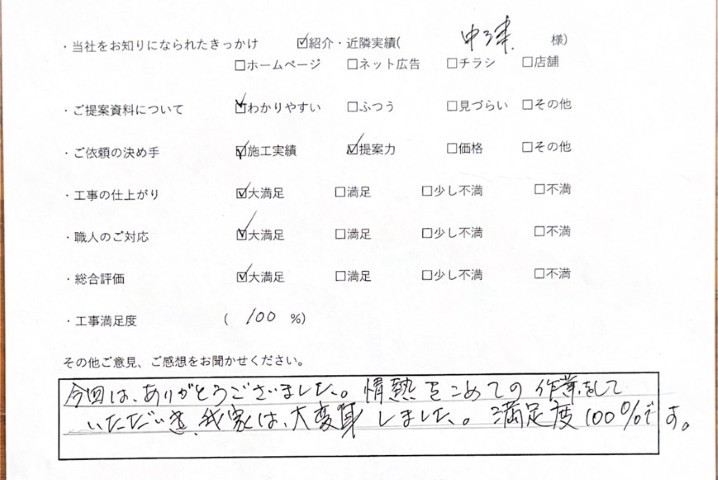 ・当社をお知りになられたきっかけ ☑紹介・近隣実績( 中澤 様)
☐ホームページ ☐ネット広告 ☐チラシ ☐店舗
・ご提案資料について ☑わかりやすい ☐ふつう ☐見づらい ☐その他
・ご依頼の決め手 ☑施工実績 ☑提案力 ☐価格 ☐その他
・工事の仕上がり ☑大満足 ☐満足 ☐少し不満 ☐不満
・職人のご対応 ☑大満足 ☐満足 ☐少し不満 ☐不満
・総合評価 ☑大満足 ☐満足 ☐少し不満 ☐不満
・工事満足度 ( 100 %)
その他ご意見、ご感想をお聞かせください。
今回は、ありがとうございました。情熱をこめての作業をして
いただいき、我家は、大変身しました。満足度100%です。